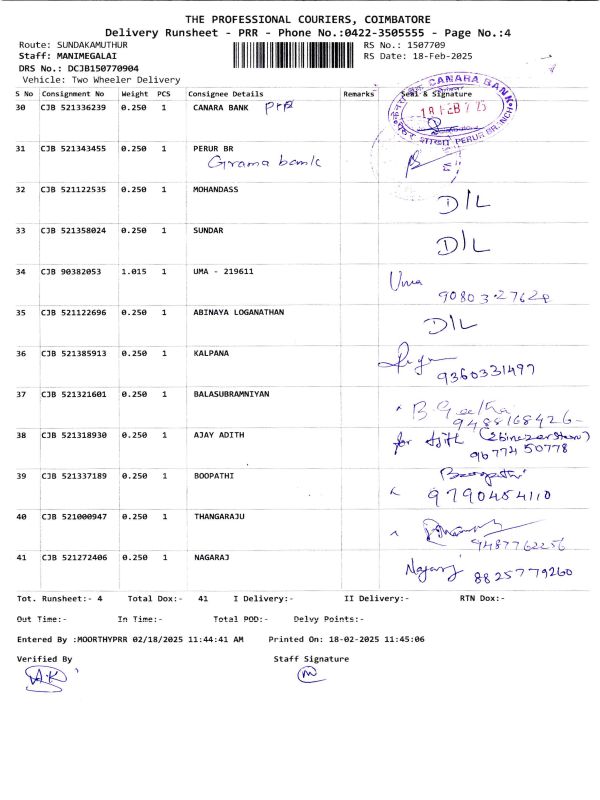 THE PROFESSIONAL COURIERS, COIMBATORE
Delivery Runsheet - PRR - Phone No.:0422-3505555 - Page No.:4
Route: SUNDAKAMUTHUR RS No.: 1507709
Staff: MANIMEGALAI RS Date: 18-Feb-2025
DRS No.: DCJB150770904
Vehicle: Two Wheeler Delivery
S No Consignment No Weight PCS Consignee Details Remarks Seal & Signature
CANARA BANK
18 FEB 2025
PERUR BRANCH
30 CJB 521336239 0.250 1 CANARA BANK PRR
31 CJB 521343455 0.250 1 PERUR BR
Grama bank
32 CJB 521122535 0.250 1 MOHANDASS D/L
33 CJB 521358024 0.250 1 SUNDAR D/L
34 CJB 90382053 1.015 1 UMA - 219611 Uma
35 CJB 521122696 0.250 1 ABINAYA LOGANATHAN D/L
36 CJB 521385913 0.250 1 KALPANA
9360331497
37 CJB 521321601 0.250 1 BALASUBRAMNIYAN B. Geetha
9488168426
38 CJB 521318930 0.250 1 AJAY ADITH for
9677450778
39 CJB 521337189 0.250 1 BOOPATHI Boopathi
9790454110
40 CJB 521000947 0.250 1 THANGARAJU
9487762256
41 CJB 521272406 0.250 1 NAGARAJ Nagaraj 8825779260
Tot. Runsheet:- 4 Total Dox:- 41 I Delivery:- II Delivery:- RTN Dox:-
Out Time:- In Time:- Total POD:- Delvy Points:-
Entered By :MOORTHYPRR 02/18/2025 11:44:41 AM Printed On: 18-02-2025 11:45:06
Verified By Staff Signature